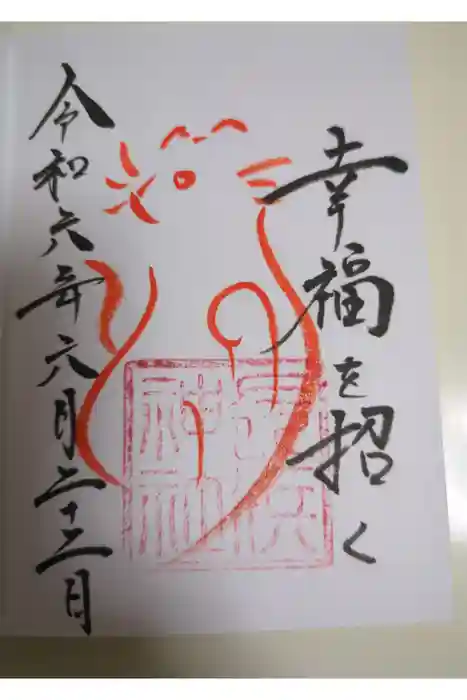 幸福を招く
令和六年六月二十二日
神社